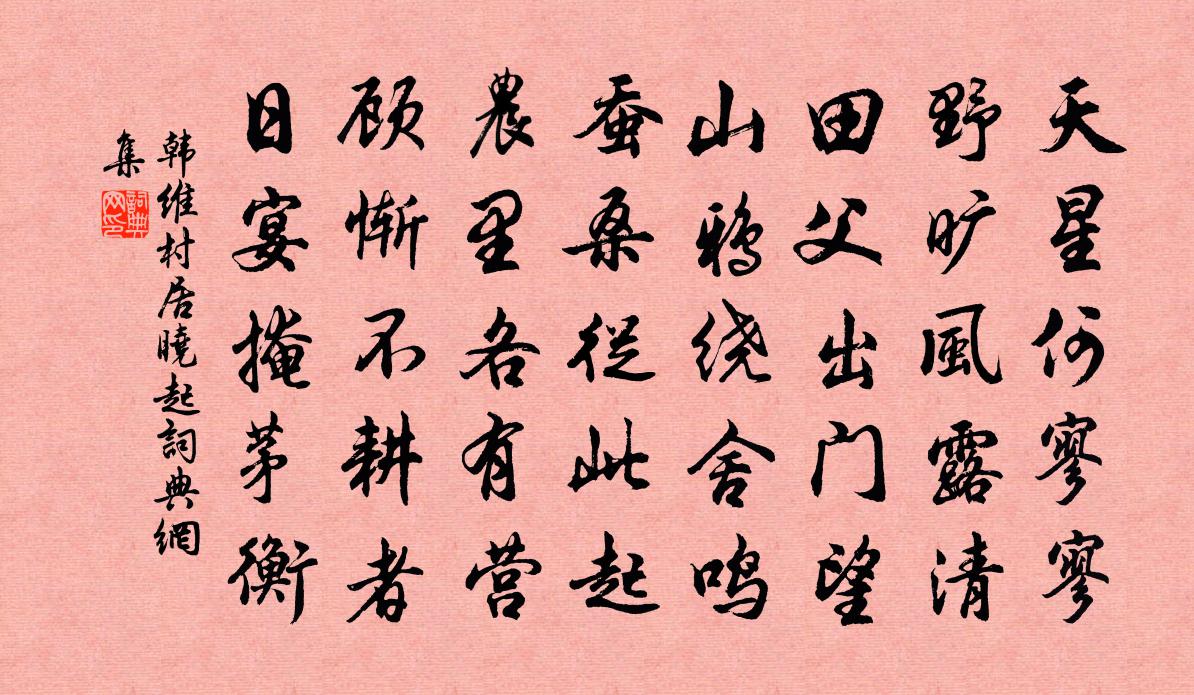 天星何寥寥
野旷風露清
田父出门望
山鸦绕舍鸣
蚕桑從此起
農里各有营
顾惭不耕者
日宴掩茅衡
韩维村居曉起詞典網
集
詞典网印